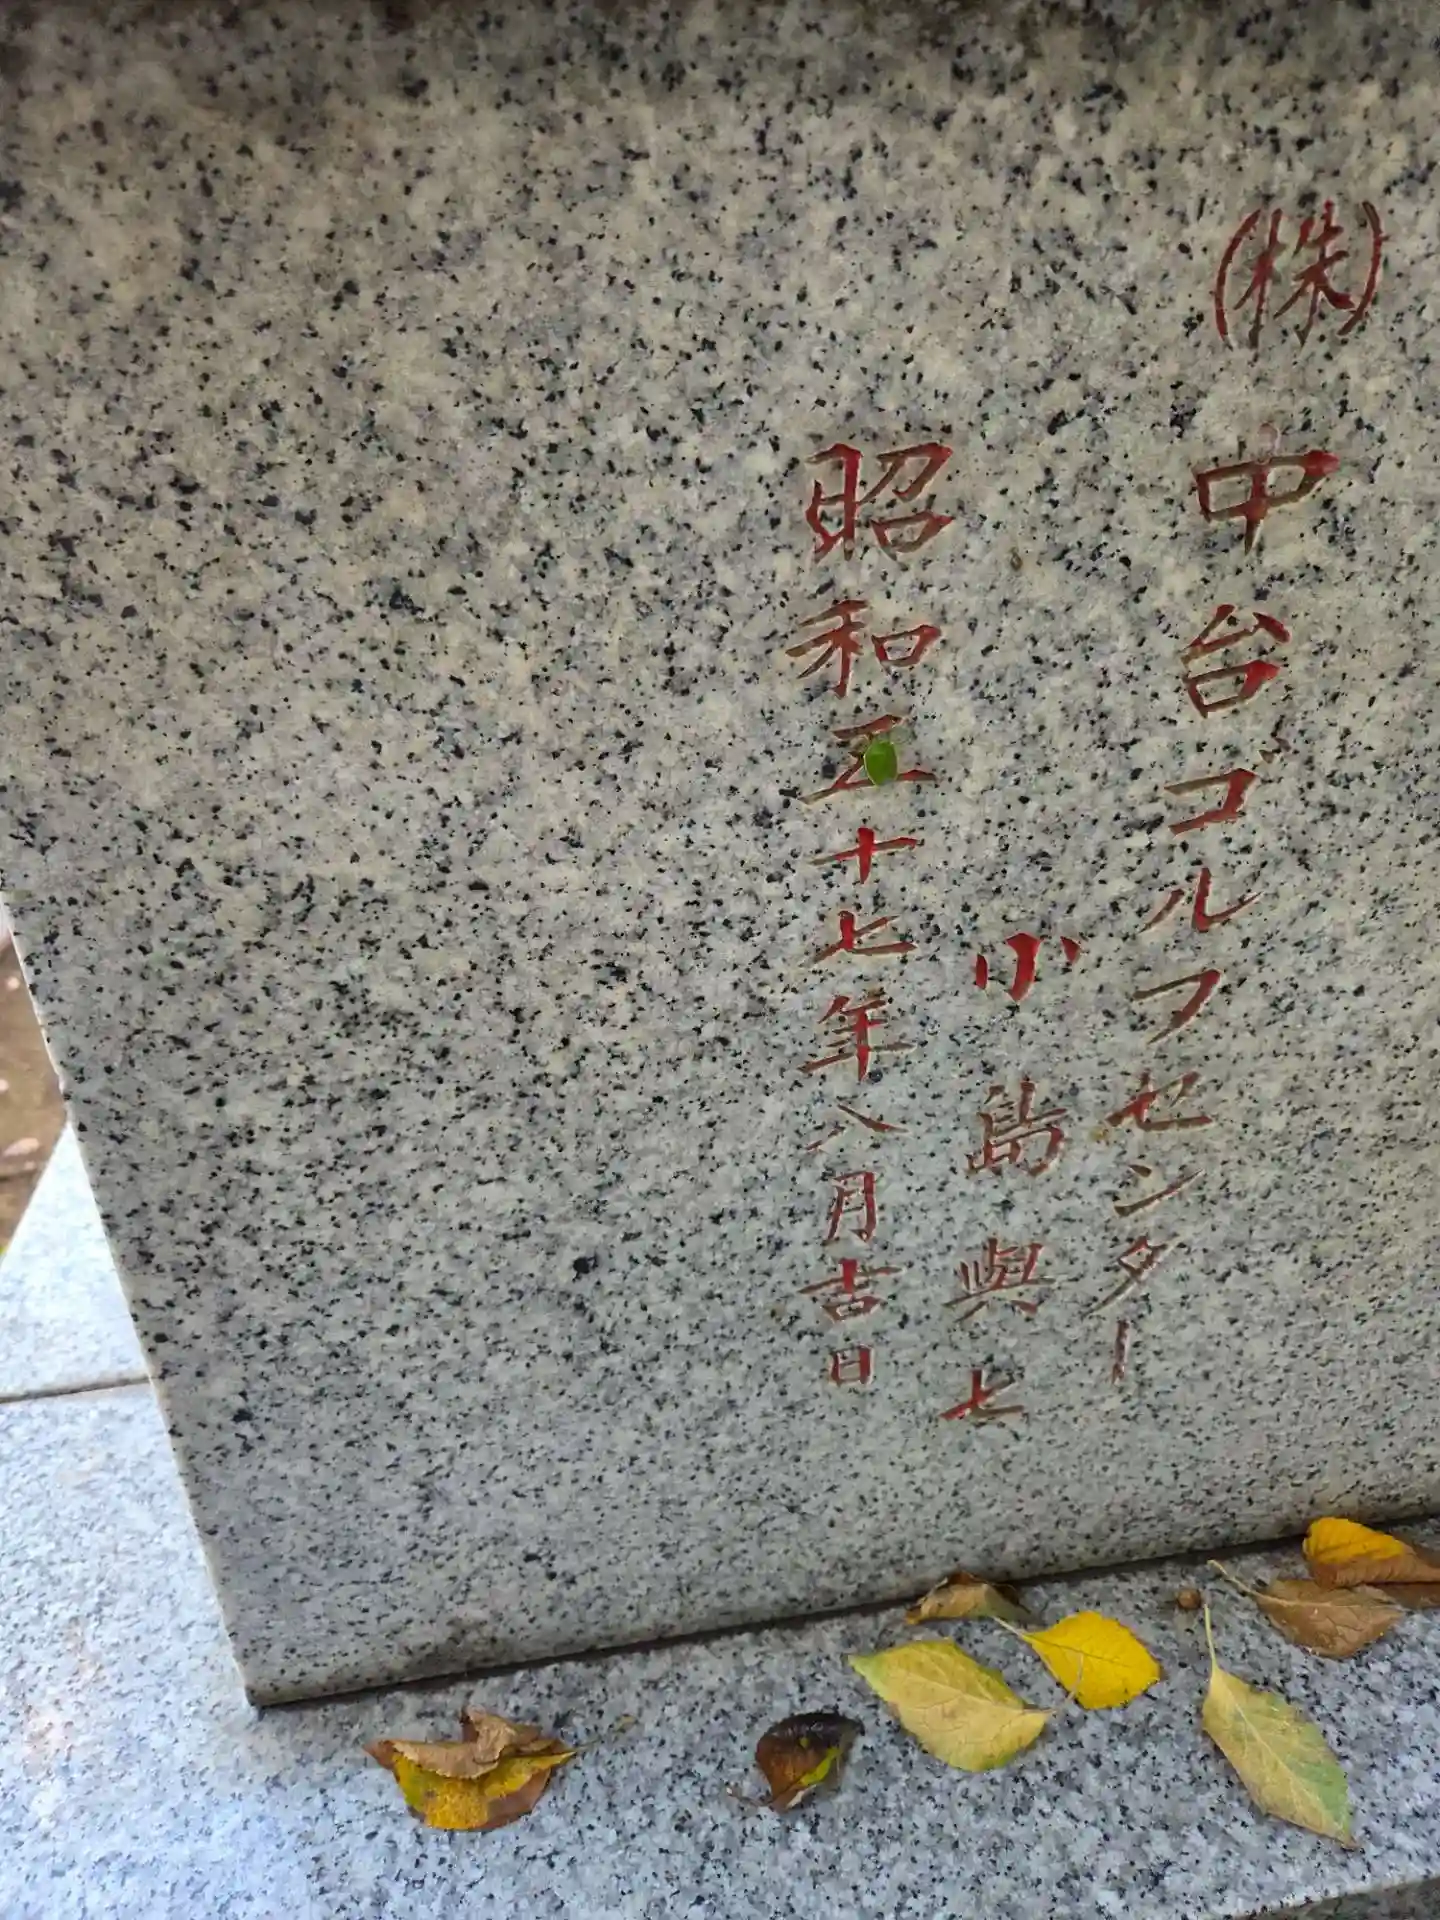 (株)中台ゴルフセンター
小島與七
昭和五十七年八月吉日